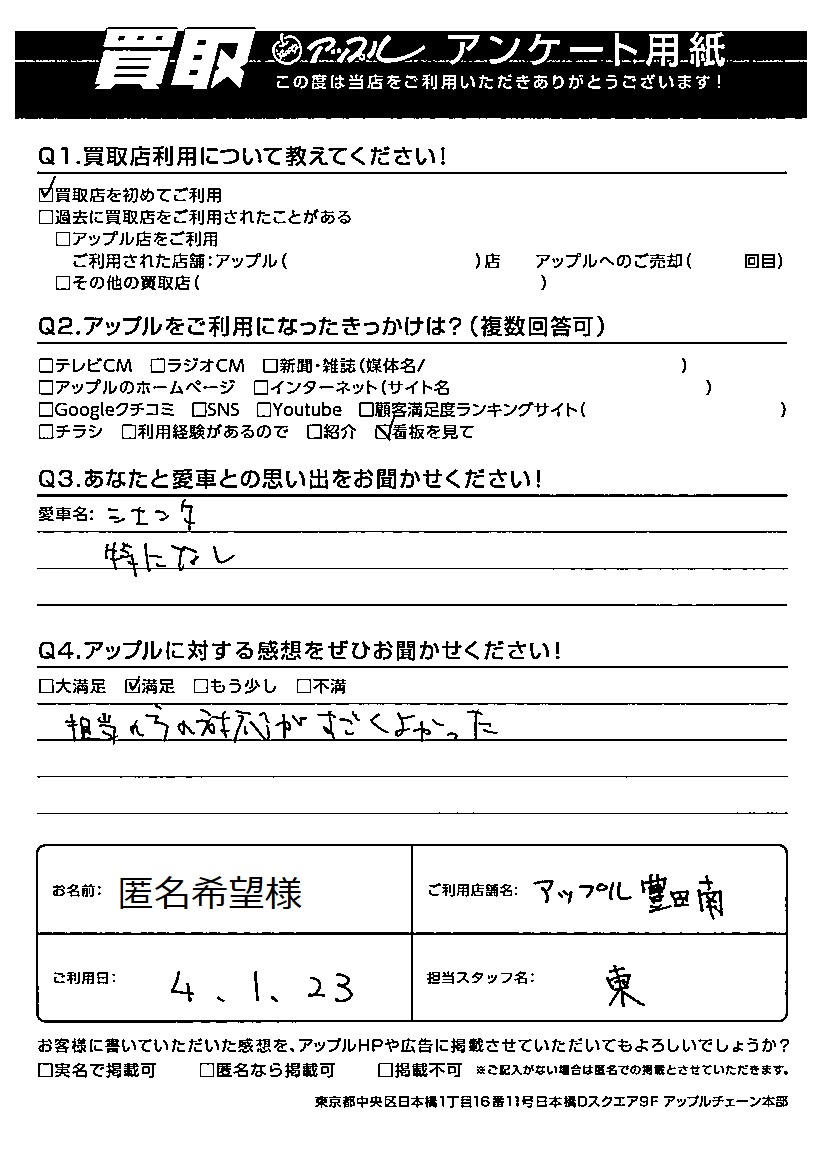 買取 アップル アンケート用紙
この度は当店をご利用いただきありがとうございます!
Q1.買取店利用について教えてください!
☑買取店を初めてご利用
□過去に買取店をご利用されたことがある
□アップル店をご利用
ご利用された店舗:アップル( )店 アップルへのご売却( 回目)
□その他の買取店( )
Q2.アップルをご利用になったきっかけは?(複数回答可)
□テレビCM □ラジオCM □新聞・雑誌(媒体名/ )
□アップルのホームページ □インターネット(サイト名 )
□Googleクチコミ □SNS □Youtube □顧客満足度ランキングサイト( )
□チラシ □利用経験があるので □紹介 ☑看板を見て
Q3.あなたと愛車との思い出をお聞かせください!
愛車名: シエンタ
特になし
Q4.アップルに対する感想をぜひお聞かせください!
□大満足 ☑満足 □もう少し □不満
担当の方の対応がすごくよかった
お名前: 匿名希望様 ご利用店舗名: アップル豊田南
ご利用日: 4、1、23 担当スタッフ名: 東
お客様に書いていただいた感想を、アップルHPや広告に掲載させていただいてもよろしいでしょうか?
□実名で掲載可 □匿名なら掲載可 □掲載不可 ※ご記入がない場合は匿名での掲載とさせていただきます。
東京都中央区日本橋1丁目16番11号日本橋Dスクエア9F アップルチェーン本部